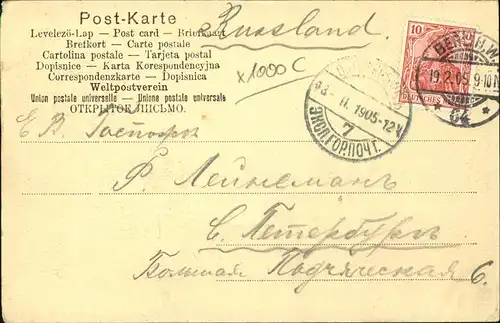 Post-Karte
Russland.
Levelező-Lap — Post card — Briefkaart
Brefkort — Carte postale
Cartolina postale — Tarjeta postal
Dopisnice — Karta Korespondencyjna
Correspondenzkarte — Dopisnica
Weltpostverein
Union postale universelle — Unione postale universale
ОТКРЫТОЕ ПИСЬМО.
x1000 C
10
DEUTSCHES
BERLIN, W.
19.2.05. 9-10N
64
*
11.1905-12Ч
7
ЭКСП.ГОР.ПОЧ Г.
Е. В. Госпожѣ
Р. Лейнеманъ
С. Петербургъ
Большая Подьяческая 6.